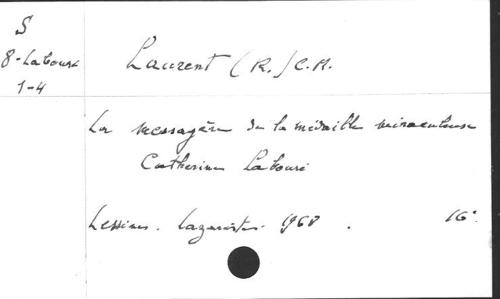 S
8-Labouré
1-4
Laurent (R.) C.M.
La messagère de la médaille miraculeuse
Catherine Labouré
Lessines. Lazaristes. 1968. 16°